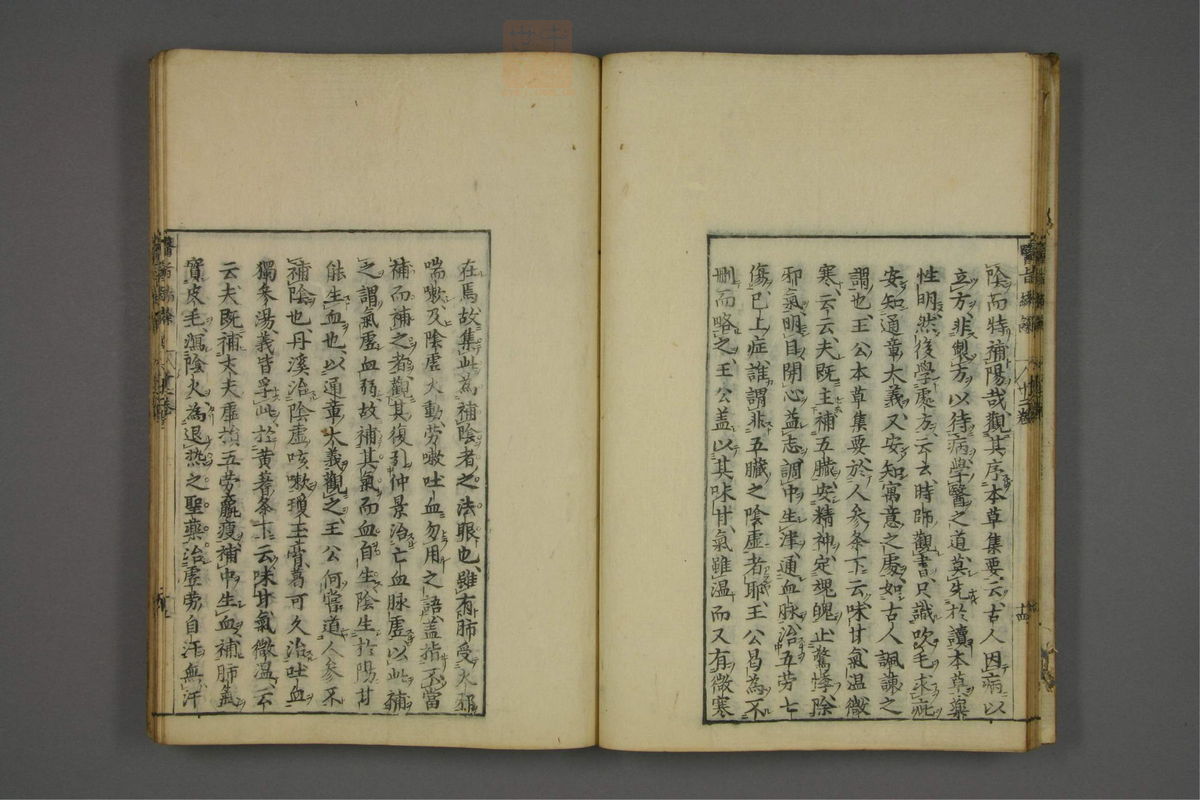 陰而特補陽哉觀其序本草集要云古人因病以
立方非製方以待病學醫之道莫先於讀本草藥
性明然後學處方云云時師觀書只識吹毛求疵
安知通章大義又安知寓意之處如古人諷諫之
謂也王公本草集要於人參条下云味甘氣温微
寒云云夫既主補五臓安精神定魂魄止驚悸除
邪氣明目開心益志調中生津通血脉治五劳七
傷已上症誰謂非五臓之陰虚者耶王公曷為不
刪而略之王公盖以其味甘氣雖温而又有微寒
在焉故集此為補陰者之法眼也雖有肺受火邪
喘嗽及陰虚火動劳嗽吐血勿用之語盖指不當
補而補之者觀其復引仲景治亡血脉虚以此補
之謂氣虚血弱故補其氣而血自生陰生於陽甘
能生血也以通章大義觀之王公何嘗道人參不
補陰也丹溪治陰虚咳嗽瓊玉膏葛可久治吐血
獨參湯義皆孚此於黄耆条下云味甘氣微温云
云夫既補丈夫虚損五劳羸瘦補中生血補肺氣
實皮毛瀉陰火為退热之聖藥治虚劳自汗無汗